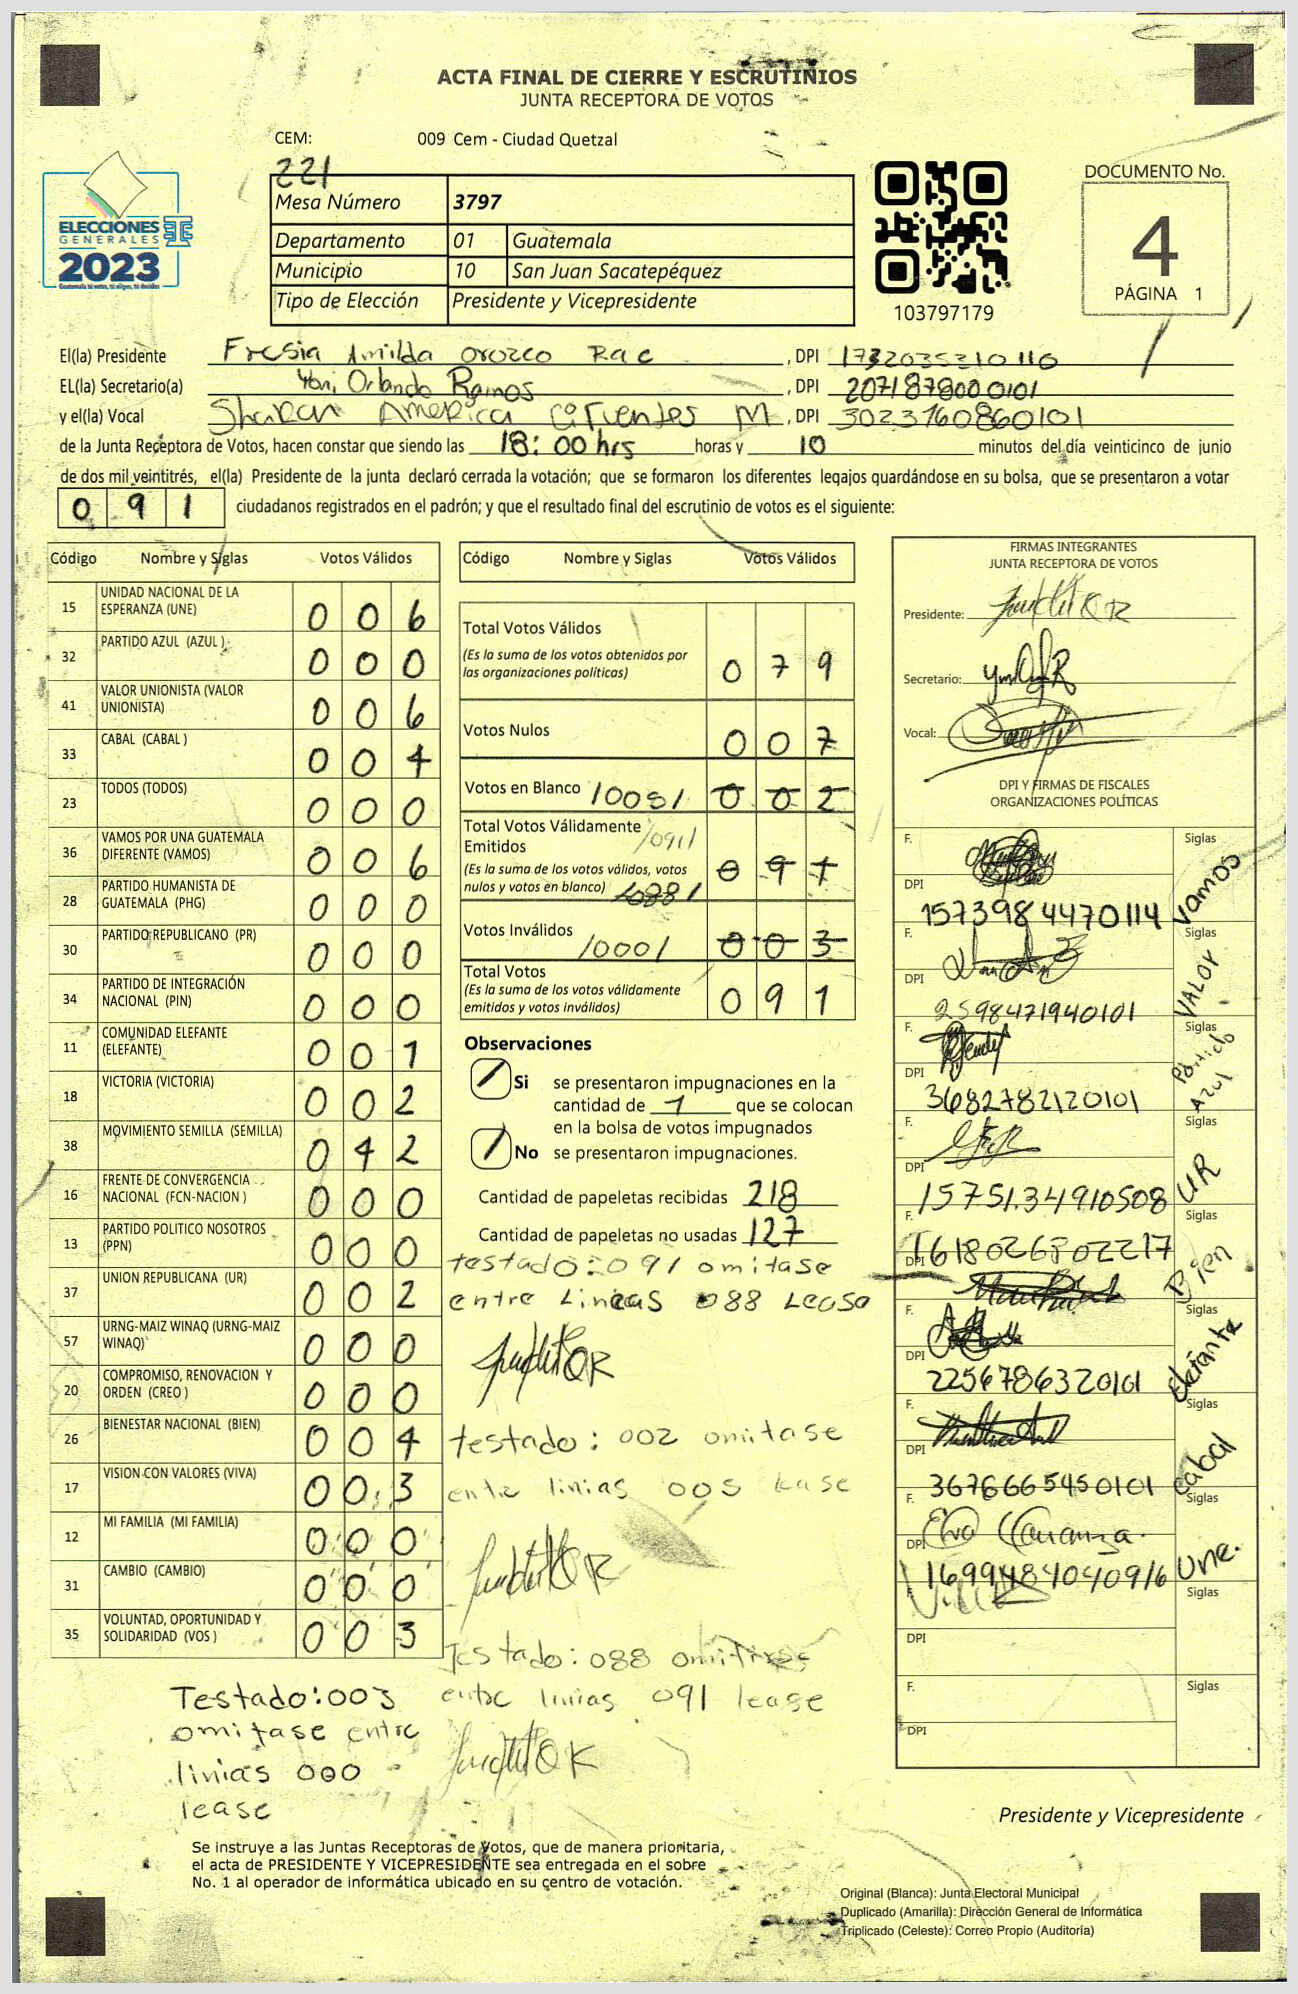 ACTA FINAL DE CIERRE Y ESCRUTINIOS
JUNTA RECEPTORA DE VOTOS
CEM: 009 Cem - Ciudad Quetzal
221
Mesa Número 3797
Departamento 01 Guatemala
Municipio 10 San Juan Sacatepéquez
Tipo de Elección Presidente y Vicepresidente
ELECCIONES
GENERALES
2023
103797179
DOCUMENTO No.
4
PÁGINA 1
El(la) Presidente Fresia Amilda Orozco Rac , DPI 1732035310110
EL(la) Secretario(a) Yoni Orlando Ramos , DPI 2071878000101
y el(la) Vocal Sharan America Cifuentes M , DPI 3023760860101
de la Junta Receptora de Votos, hacen constar que siendo las 18:00 hrs horas y 10 minutos del día veinticinco de junio
de dos mil veintitrés, el(la) Presidente de la junta declaró cerrada la votación; que se formaron los diferentes legajos guardándose en su bolsa, que se presentaron a votar
0 9 1 ciudadanos registrados en el padrón; y que el resultado final del escrutinio de votos es el siguiente:
Código Nombre y Siglas Votos Válidos
15 UNIDAD NACIONAL DE LA ESPERANZA (UNE) 0 0 6
32 PARTIDO AZUL (AZUL ) 0 0 0
41 VALOR UNIONISTA (VALOR UNIONISTA) 0 0 6
33 CABAL (CABAL ) 0 0 4
23 TODOS (TODOS) 0 0 0
36 VAMOS POR UNA GUATEMALA DIFERENTE (VAMOS) 0 0 6
28 PARTIDO HUMANISTA DE GUATEMALA (PHG) 0 0 0
30 PARTIDO REPUBLICANO (PR) 0 0 0
34 PARTIDO DE INTEGRACIÓN NACIONAL (PIN) 0 0 0
11 COMUNIDAD ELEFANTE (ELEFANTE) 0 0 1
18 VICTORIA (VICTORIA) 0 0 2
38 MOVIMIENTO SEMILLA (SEMILLA) 0 4 2
16 FRENTE DE CONVERGENCIA NACIONAL (FCN-NACION ) 0 0 0
13 PARTIDO POLITICO NOSOTROS (PPN) 0 0 0
37 UNION REPUBLICANA (UR) 0 0 2
57 URNG-MAIZ WINAQ (URNG-MAIZ WINAQ) 0 0 0
20 COMPROMISO, RENOVACION Y ORDEN (CREO ) 0 0 0
26 BIENESTAR NACIONAL (BIEN) 0 0 4
17 VISION CON VALORES (VIVA) 0 0 3
12 MI FAMILIA (MI FAMILIA) 0 0 0
31 CAMBIO (CAMBIO) 0 0 0
35 VOLUNTAD, OPORTUNIDAD Y SOLIDARIDAD (VOS ) 0 0 3
Testado:003
omitase entre
linias 000
lease
Código Nombre y Siglas Votos Válidos
Total Votos Válidos 0 7 9
(Es la suma de los votos obtenidos por
las organizaciones políticas)
Votos Nulos 0 0 7
Votos en Blanco /005/ 0 0 2
Total Votos Válidamente /091/
Emitidos 0 9 1
(Es la suma de los votos válidos, votos
nulos y votos en blanco) /088/
Votos Inválidos /000/ 0 0 3
Total Votos 0 9 1
(Es la suma de los votos válidamente
emitidos y votos inválidos)
Observaciones
Si se presentaron impugnaciones en la
cantidad de 1 que se colocan
en la bolsa de votos impugnados
No se presentaron impugnaciones.
Cantidad de papeletas recibidas 218
Cantidad de papeletas no usadas 127
testado:091 omitase
entre Lineas 088 Lease
testado: 002 omitase
entre linias 005 lease
Testado: 088 omitirse
entre linias 091 lease
FIRMAS INTEGRANTES
JUNTA RECEPTORA DE VOTOS
Presidente:
Secretario:
Vocal:
DPI Y FIRMAS DE FISCALES
ORGANIZACIONES POLÍTICAS
F. Siglas
DPI 1573984470114 Vamos
F. Siglas
DPI 2598471940101 VALOR
F. Siglas
DPI 3682782120101 Partido Azul
F. Siglas
DPI 1575134910508 UR
F. Siglas
DPI 1618026802217 Bien
F. Siglas
DPI 2256786320101 Elefante
F. Siglas
DPI 3676665450101 Cabal
F. Elva Carranza Siglas
DPI 1699484040916 Une.
F. Siglas
DPI
F. Siglas
DPI
Presidente y Vicepresidente
Se instruye a las Juntas Receptoras de Votos, que de manera prioritaria,
el acta de PRESIDENTE Y VICEPRESIDENTE sea entregada en el sobre
No. 1 al operador de informática ubicado en su centro de votación.
Original (Blanca): Junta Electoral Municipal
Duplicado (Amarilla): Dirección General de Informática
Triplicado (Celeste): Correo Propio (Auditoría)